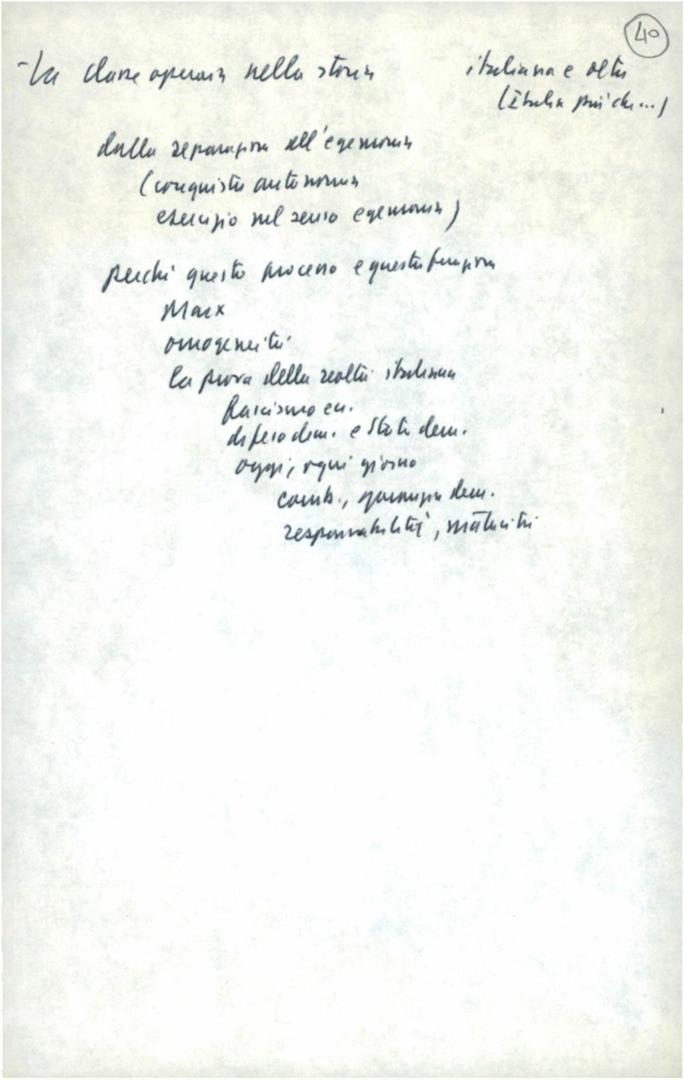 40
- La classe operaia nella storia italiana e oltre
(Italia più che...)
dalla separazione all'egemonia
(conquista autonomia
esercizio nel senso egemonia)
perché questo processo e questa funzione
Marx
omogeneità
la prova della realtà italiana
Fascismo ecc.
difesa dem. e Stato dem.
oggi, ogni giorno
comb., garanzia dem.
responsabilità, maturità